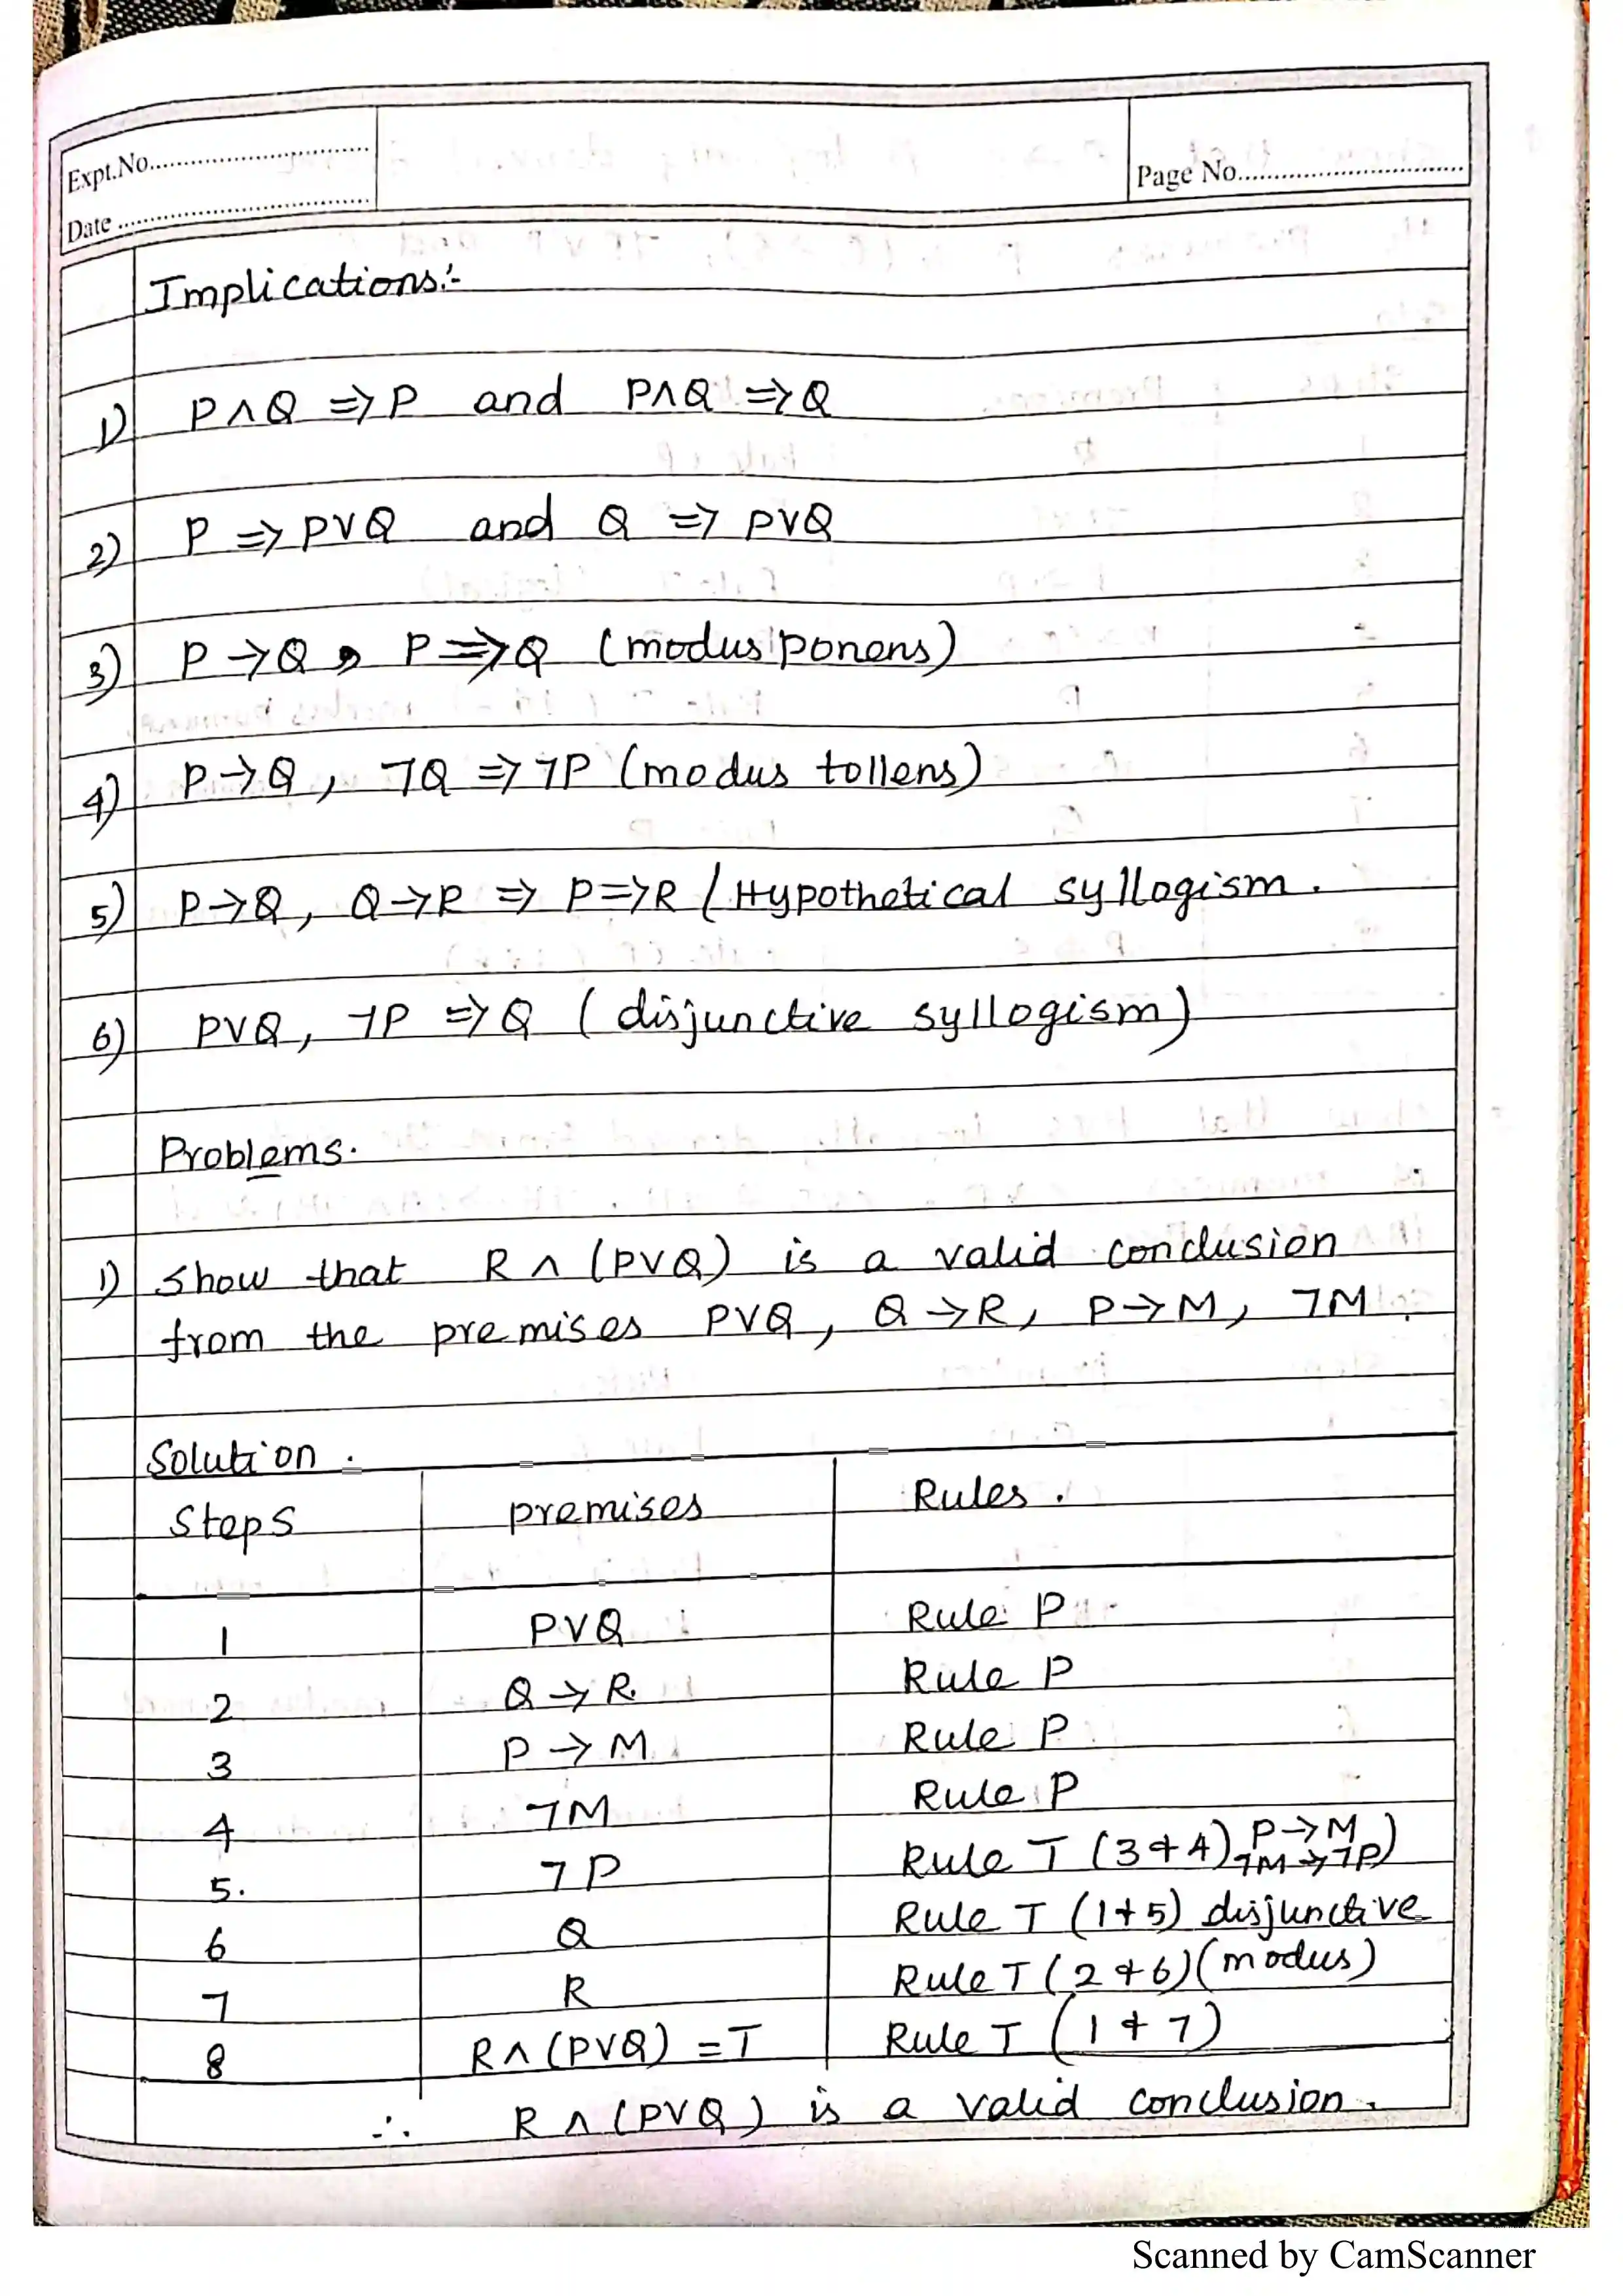 Expt.No.
Page No.
Date
Implications:-
1) P∧Q ⇒ P and P∧Q ⇒ Q
2) P ⇒ P∨Q and Q ⇒ P∨Q
3) P → Q, P ⇒ Q (modus ponens)
4) P → Q, ¬Q ⇒ ¬P (modus tollens)
5) P → Q, Q → R ⇒ P ⇒ R (Hypothetical syllogism.
6) P∨Q, ¬P ⇒ Q (disjunctive syllogism)
Problems.
1) Show that R ∧ (P∨Q) is a valid conclusion
from the premises P∨Q, Q → R, P → M, ¬M.
Solution.
Steps premises Rules.
1 P∨Q Rule P
2 Q → R Rule P
3 P → M Rule P
4 ¬M Rule P
5. ¬P Rule T (3 & 4) P → M, ¬M → ¬P)
6 Q Rule T (1 & 5) disjunctive
7 R Rule T (2 & 6) (modus)
8 R ∧ (P∨Q) = T Rule T (1 & 7)
∴ R ∧ (P∨Q) is a valid conclusion.
Scanned by CamScanner